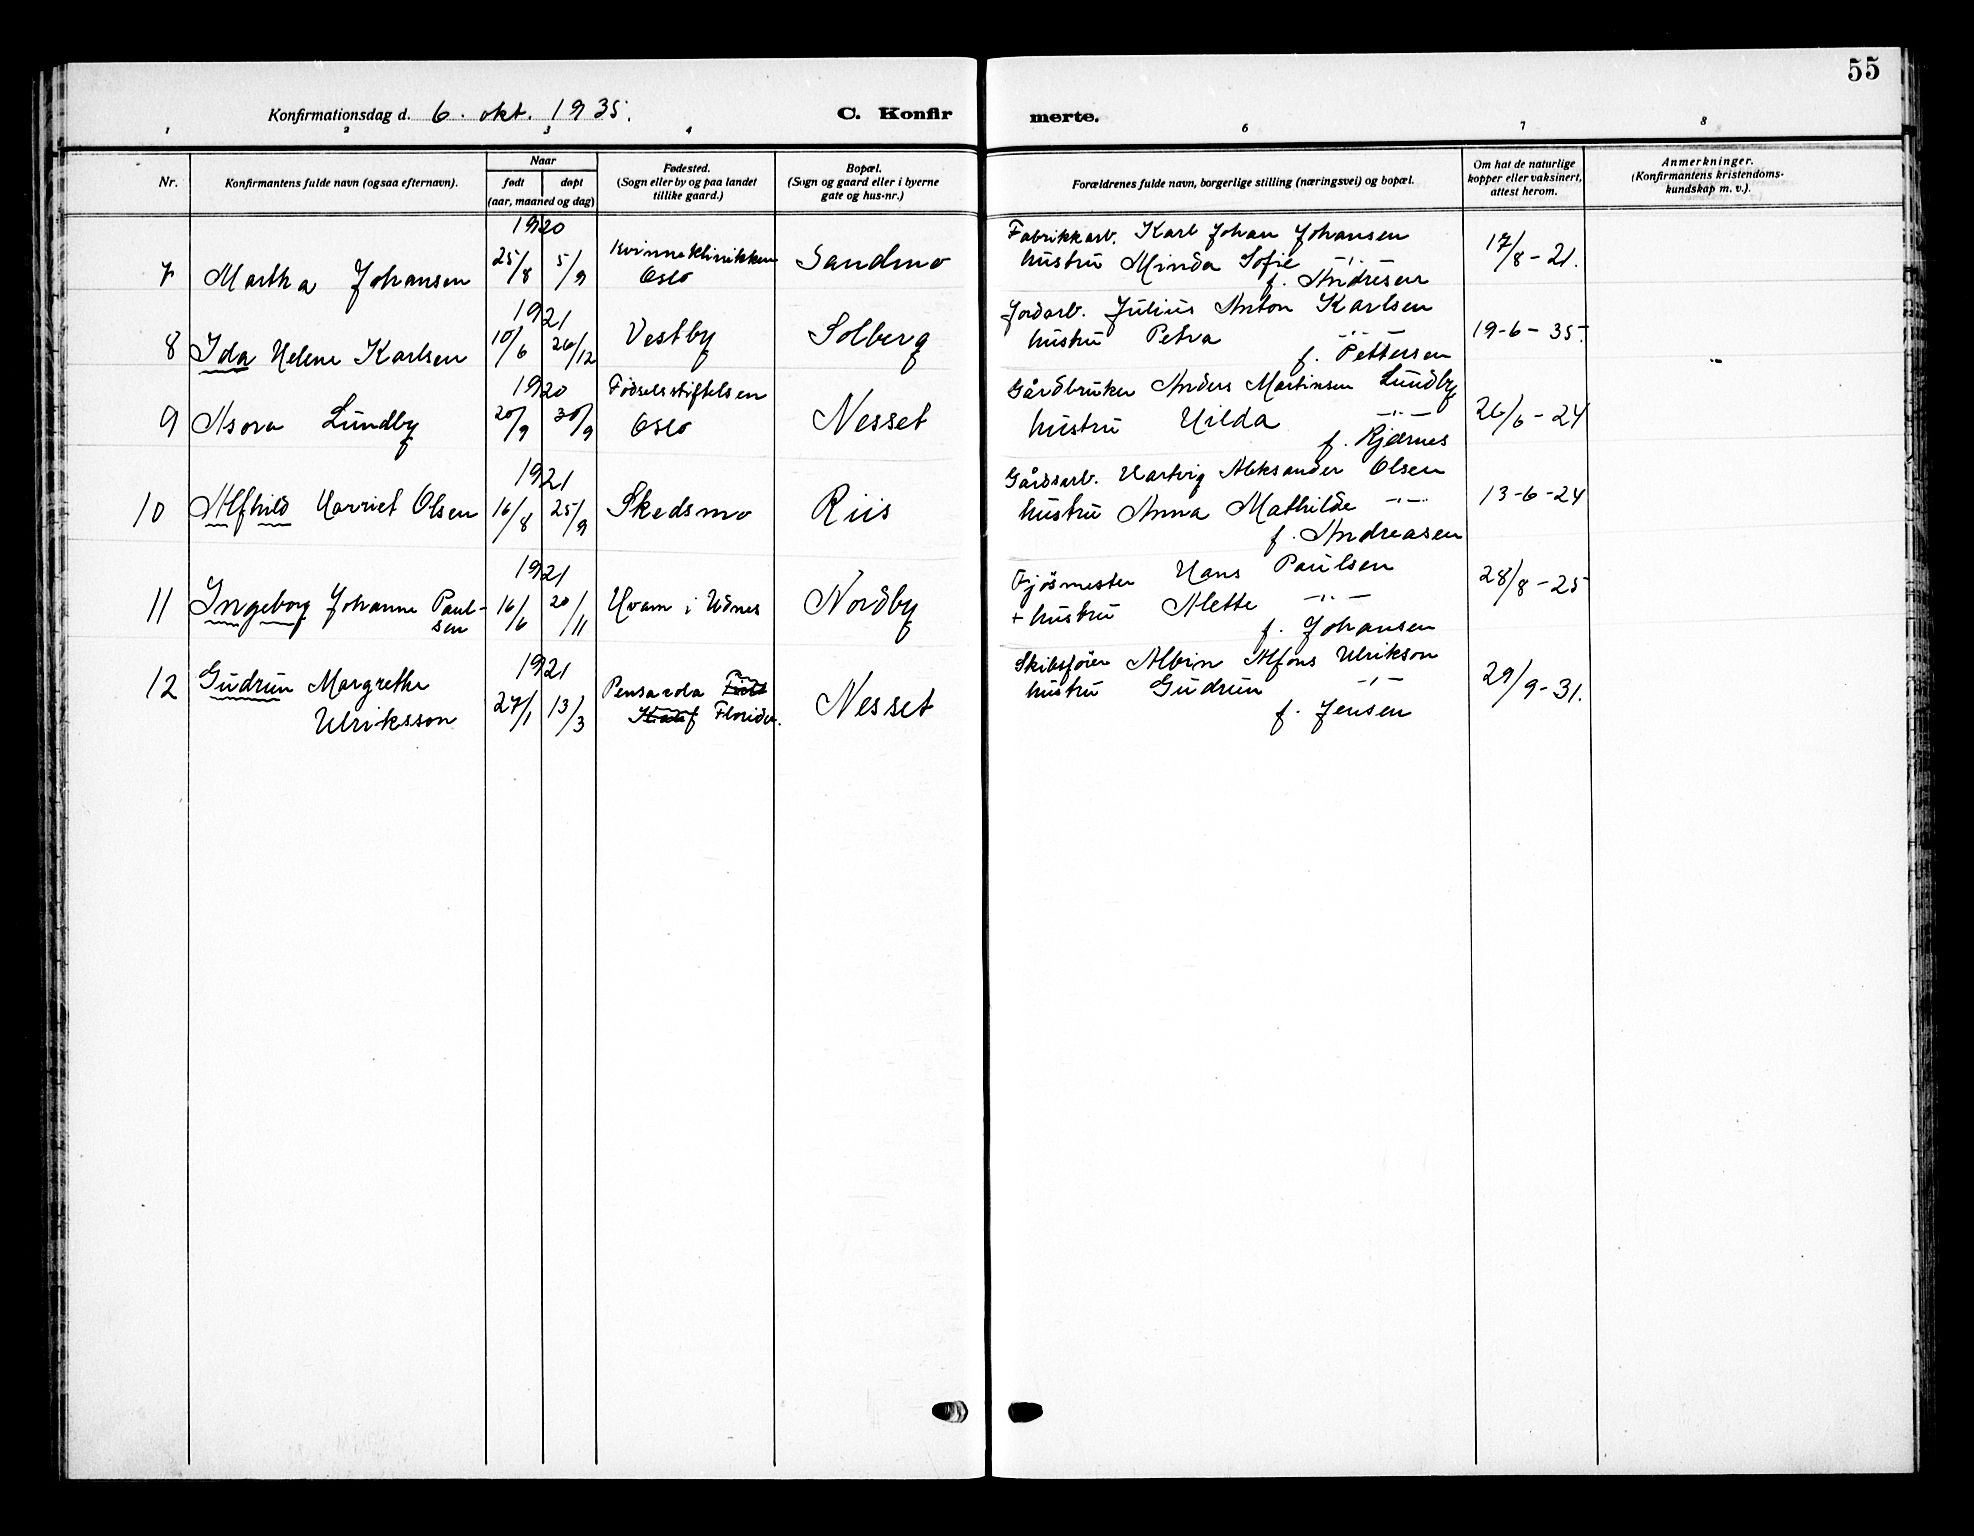 55
Konfirmationsdag d. 6. okt. 1935.
C. Konfir
merte.
1 2 3 4 6 7 8
Nr.
Konfirmantens fulde navn (ogsaa efternavn).
Naar
født
døpt
(aar, maaned og dag)
Fødested.
(Sogn eller by og paa landet
tillike gaard.)
Bopæl.
(Sogn og gaard eller i byerne
gate og hus-nr.)
Forældrenes fulde navn, borgerlige stilling (næringsvei) og bopæl.
Om hat de naturlige
kopper eller vaksinert,
attest herom.
Anmerkninger.
(Konfirmantens kristendoms-
kundskap m. v.).
1920
7 Martha Johansen 25/8 5/9
Kvinneklinikken
Oslo
Sandmo
Fabrikkarb. Karl Johan Johansen
hustru Minda Sofie -"-
f. Andresen
17/8 - 21.
1921
8 Ida Helene Karlsen 10/6 26/12 Vestby Solberg
Jordarb. Julius Anton Karlsen
hustru Petra -"-
f. Pettersen
19-6-35.
1920
9 Asora Lundby 20/9 30/9
Fødselsstiftelsen
Oslo
Nesset
Gårdbruker Anders Martinsen Lundby
hustru Hilda -"-
f. Kjærnes
26/6 - 24
1921
10 Alfhild Harriet Olsen 16/8 25/9 Skedsmo Riis
Gårdsarb. Hartvig Aleksander Olsen
hustru Anna Mathilde -"-
f. Andreasen
13-6-24
1921
11 Ingeborg Johanne Paul-
sen
16/6 20/11 Hvam i Udnes Nordby
Fjøsmester Hans Paulsen
+ hustru Alette -"-
f. Johansen
28/8 - 25
1921
12 Gudrun Margrethe
Ulriksson
27/1 13/3
Pensacola
Florida.
Nesset
Skibsfører Albin Alfons Ulrikson
hustru Gudrun -"-
f. Jensen
29/9 - 31.